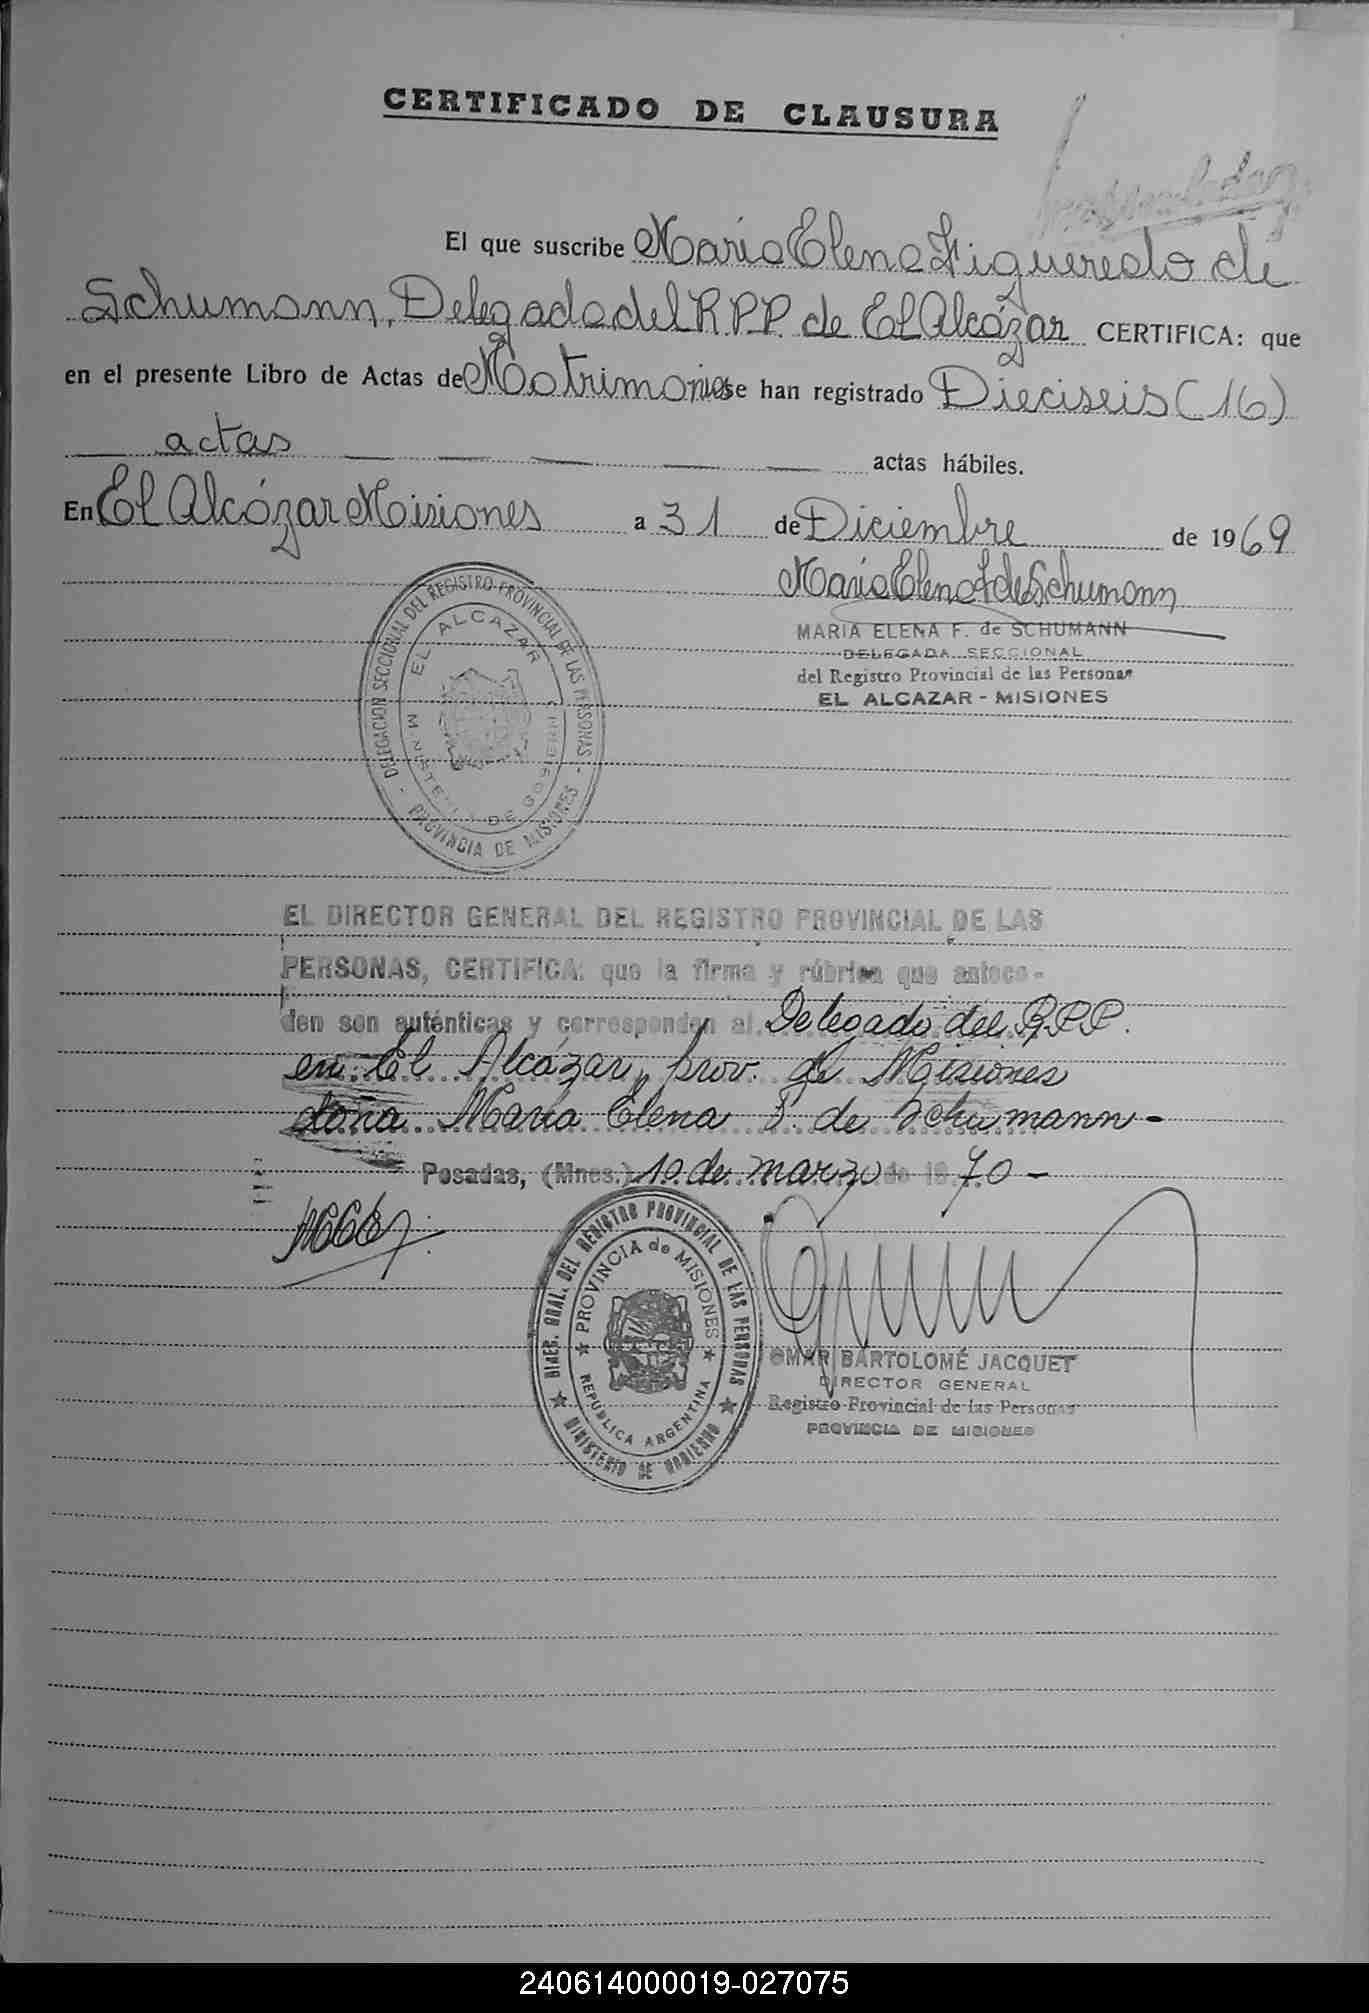 CERTIFICADO DE CLAUSURA
El que suscribe Maria Elena Figueredo de
Schumann, Delegada del R.P.P. de El Alcázar CERTIFICA: que
en el presente Libro de Actas de Matrimonios se han registrado Dieciseis (16)
actas actas hábiles.
En El Alcázar Misiones a 31 de Diciembre de 1969
Maria Elena F de Schumann
MARIA ELENA F. de SCHUMANN
DELEGADA SECCIONAL
del Registro Provincial de las Personas
EL ALCAZAR - MISIONES
DELEGACION SECCIONAL DEL REGISTRO PROVINCIAL DE LAS PERSONAS
- PROVINCIA DE MISIONES -
EL ALCAZAR
MINISTERIO DE GOBIERNO
EL DIRECTOR GENERAL DEL REGISTRO PROVINCIAL DE LAS
PERSONAS, CERTIFICA: que la firma y rúbrica que antece-
den son auténticas y corresponden al Delegado del R.P.P.
en El Alcázar, prov. de Misiones
doña María Elena F. de Schumann -
Posadas, (Mnes.) 10 de marzo de 1970 -
DIREC. GRAL. DEL REGISTRO PROVINCIAL DE LAS PERSONAS
MINISTERIO DE GOBIERNO
PROVINCIA de MISIONES
REPUBLICA ARGENTINA
OMAR BARTOLOMÉ JACQUET
DIRECTOR GENERAL
Registro Provincial de las Personas
PROVINCIA DE MISIONES
240614000019-027075